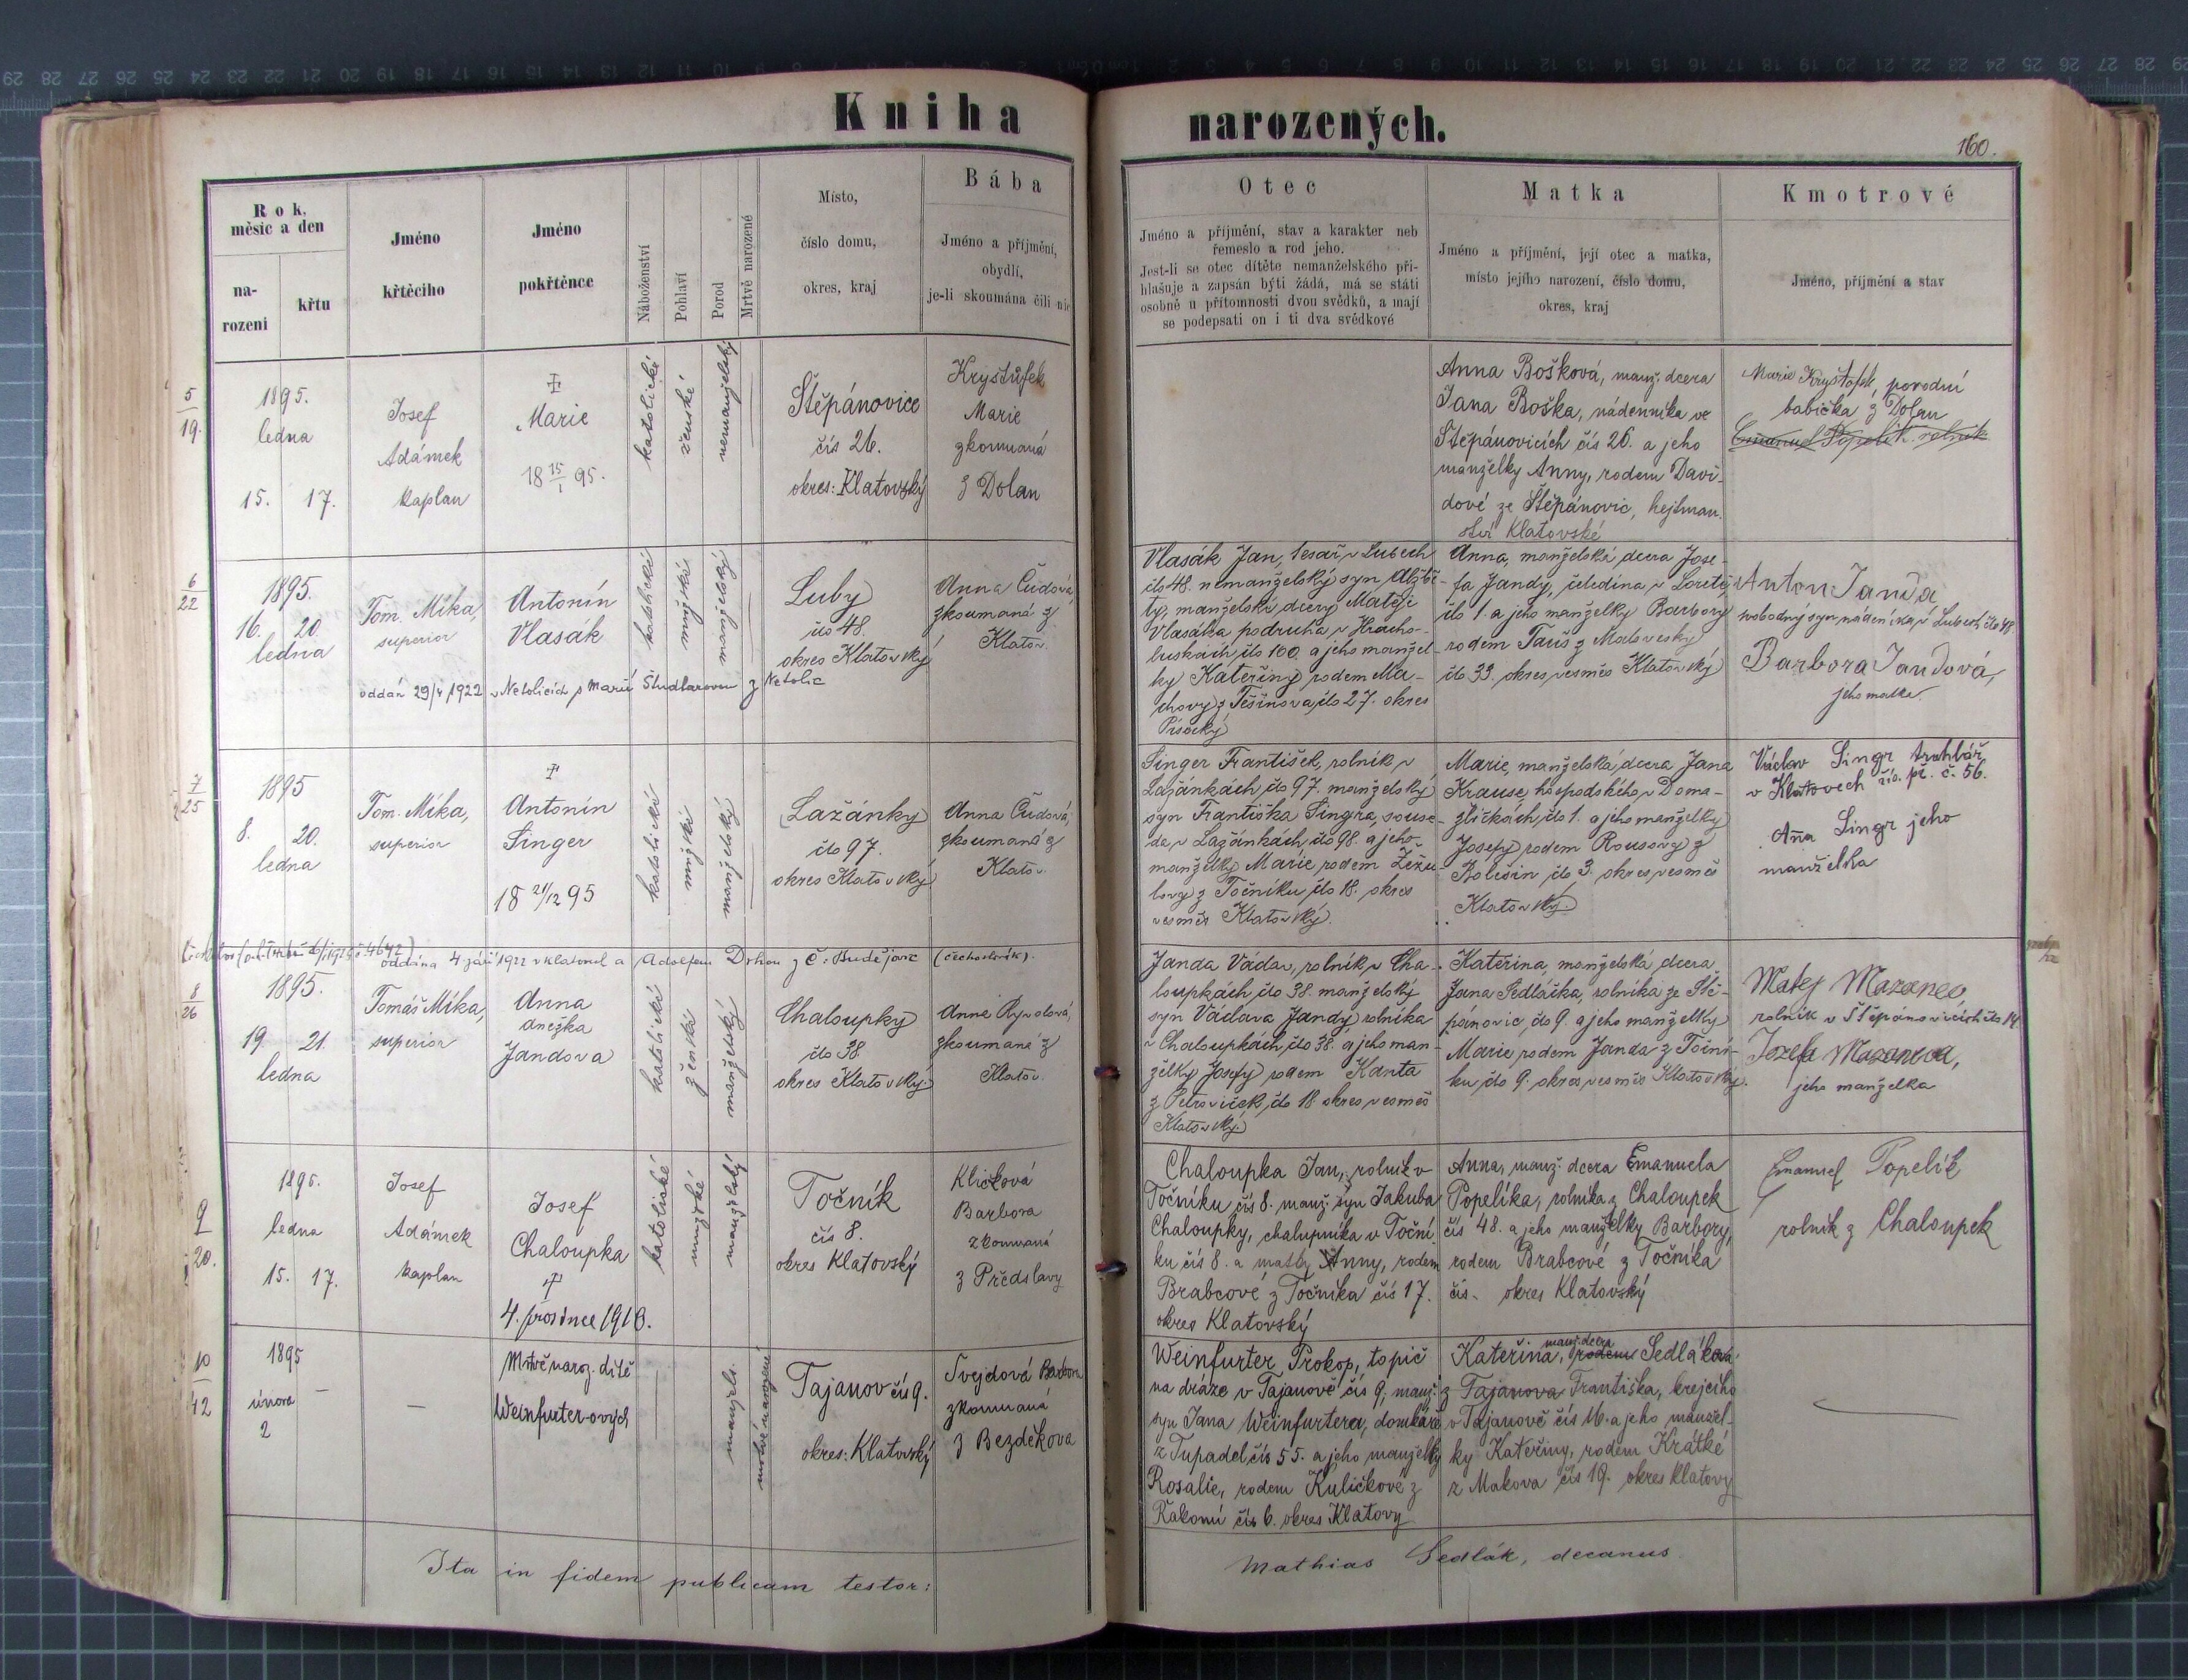 Kniha narozených.
160.
Rok, měsíc a den
narození
křtu
Jméno křtěcího
Jméno pokřtěnce
Náboženství
Pohlaví
Porod
Mrtvě narozené
Místo,
číslo domu,
okres, kraj
Bába
Jméno a příjmění,
obydlí,
je-li skoumána čili nic
Otec
Jméno a příjmění, stav a karakter neb
řemeslo a rod jeho.
Jest-li se otec dítěte nemanželského při-
hlašuje a zapsán býti žádá, má se státi
osobně u přítomnosti dvou svědků, a mají
se podepsati on i ti dva svědkové
Matka
Jméno a příjmění, její otec a matka,
místo jejího narození, číslo domu,
okres, kraj
Kmotrové
Jméno, příjmění a stav
5
19.
1895.
ledna
15. 17.
Josef
Adámek
kaplan
Marie
18 15/I 95.
katolické
ženské
nemanželský
Štěpánovice
čís 26.
okres: Klatovský
Kryštůfek
Marie
zkoumaná
z Dolan
Anna Bošková, manž. dcera
Jana Boška, nádenníka ve
Štěpánovicích čís 26. a jeho
manželky Anny, rodem Davi-
dové ze Štěpánovic, hejtman.
ství Klatovské
Marie Kryštofek, porodní
babička z Dolan
Emanuel Popelík rolník
6
22
1895.
16. 20.
ledna
Tom. Míka,
superior
Antonín
Vlasák
katolické
mužské
manželský
Luby
čís 48.
okres Klatovský
Anna Čudová,
zkoumaná z
Klatov.
oddán 29/4 1922 v Netolicích s Marií Študlarovou z Netolic
Vlasák Jan, tesař v Lubech
čís 48. nemanželský syn Alžbě-
ty, manželské dcery Matěje
Vlasáka podruha v Hracho-
luskách, čís 100. a jeho manžel-
ky Kateřiny rodem Ma-
chovy z Těšínova, čís 27. okres
Písecký
Anna, manželská dcera Jose-
fa Jandy, čeledína v Loretě,
čís 1. a jeho manželky Barbory
rodem Tauš z Malovesky
čís 33. okres vesměs Klatovský
Anton Janda
svobodný syn nádeníka v Lubech čís 48
Barbora Jandová,
jeho matka.
7
25
1895
8. 20.
ledna
Tom. Míka,
superior
Antonín
Singer
18 21/12 95
katolické
mužské
manželský
Lažánky
čís 97.
okres Klatovský
Anna Čudová,
zkoumaná z
Klatov.
Singer František, rolník v
Lažánkách čís 97. manželský
syn Františka Singra, souse-
da v Lažánkách čís 98. a jeho
manželky Marie rodem Žežu-
lovy z Točníku čís 18. okres
vesměs Klatovský.
Marie, manželská dcera Jana
Krause, hospodského v Doma-
žličkách, čís 1. a jeho manželky
Josefy rodem Rousovy z
Bolešin čís 3. okres vesměs
Klatovský.
Václav Singr truhlář
v Klatovech říš. př. č. 56.
Aňa Singr jeho
manželka
oddána 4. září 1922 v Klatovech s Adolfem Drhou z Č. Budějovic (čechoslovák).
8
26
1895.
19. 21.
ledna
Tomáš Míka,
superior
Anna
Anežka
Jandova
katolické
ženské
manželský
Chaloupky
čís 38.
okres Klatovský.
Anna Ryvolová,
zkoumaná z
Klatov.
Janda Václav, rolník v Cha-
loupkách, čís 38. manželský
syn Václava Jandy rolníka
v Chaloupkách, čís 38. a jeho man-
želky Josefy rodem Kanta
z Petroviček, čís 18 okres vesměs
Klatovský.
Kateřina, manželská dcera
Jana Sedláčka, rolníka ze Ště-
pánovic, čís 9. a jeho manželky
Marie rodem Janda z Toční-
ku čís 9. okres vesměs Klatovský.
Matěj Mazanec,
rolník v Štěpánovicích čís 14
Jozefa Mazancova,
jeho manželka
9
20.
1895.
ledna
15. 17.
Josef
Adámek
kaplan
Josef
Chaloupka
4. prosince 1918.
katolické
mužské
manželský
Točník
čís 8.
okres Klatovský
Kličková
Barbora
zkoumaná
z Předslavy
Chaloupka Jan, rolník v
Točníku čís 8. manž. syn Jakuba
Chaloupky, chalupníka v Toční-
ku čís 8. a matky Anny, rodem
Brabcové z Točníka čís 17.
okres Klatovský
Anna, manž. dcera Emanuela
Popelíka, rolníka z Chaloupek
čís 48. a jeho manželky Barbory,
rodem Brabcové z Točníka
čís - okres Klatovský
Emanuel Popelík
rolník z Chaloupek
10
42
1895
února
2
Mrtvě naroz. dítě
Weinfurter-ových
manžels.
mrtvě narozené
Tajanov čís 9.
okres: Klatovský
Švejdová Barbora
zkoumaná
z Bezděkova
Weinfurter Prokop, topič
na dráze v Tajanově čís 9, manž.
syn Jana Weinfurtera, domkáře
z Tupadel čís 55. a jeho manželky
Rosalie, rodem Kuličkové z
Řakomi čís 6. okres Klatovy
Kateřina, manž. dcera rodem Sedláková
z Tajanova Františka, krejčího
v Tajanově čís 16. a jeho manžel-
ky Kateřiny, rodem Krátké
z Makova čís 19. okres Klatovy
Ita in fidem publicam testor:
Mathias Sedlák, decanus